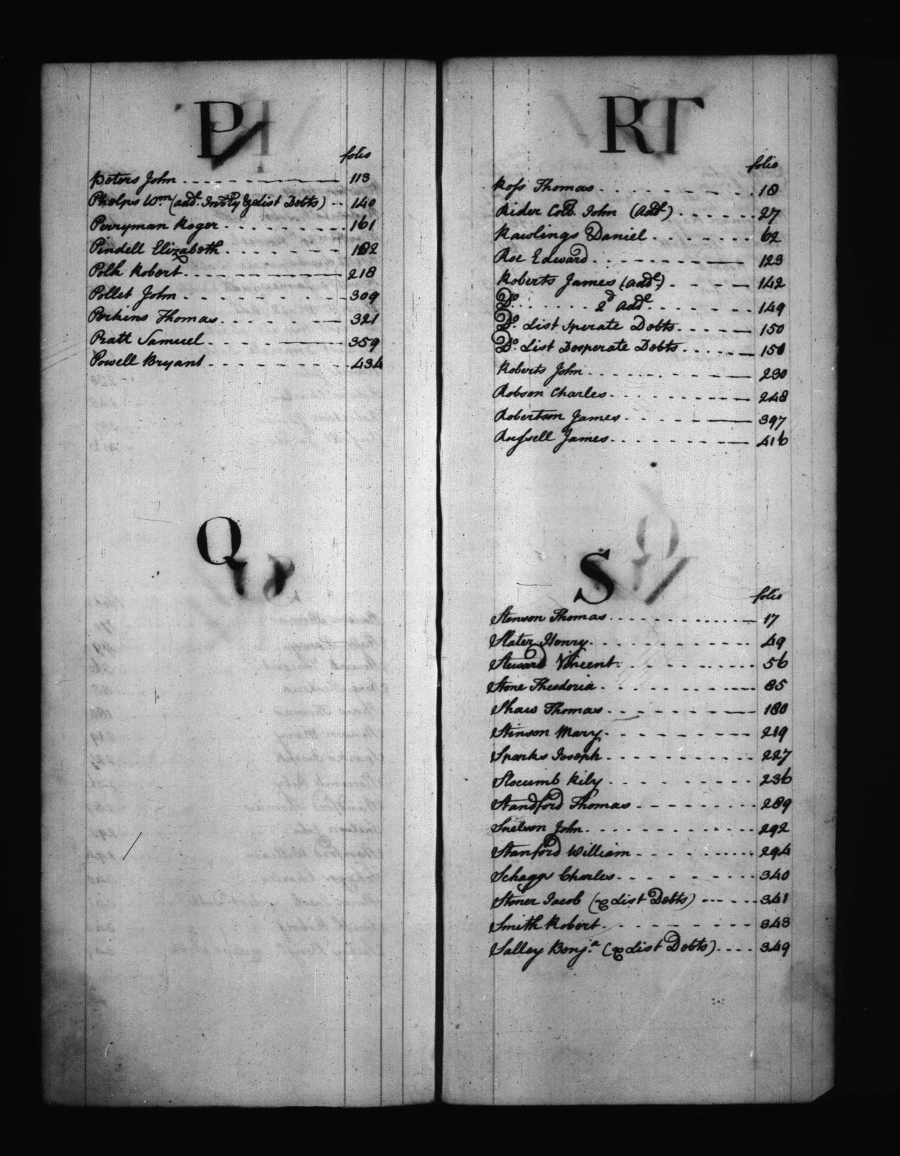 P
folio
Peters John 113
Phelps Wm (add. Invty & list Debts) 140
Perryman Roger 161
Pindell Elizabeth 182
Polk Robert 218
Pollet John 309
Perkins Thomas 321
Pratt Samuel 359
Powell Bryant 434
Q
R
folio
Ross Thomas 18
Rider Colo. John (add.) 27
Rawlings Daniel 62
Roe Edward 123
Roberts James (addl) 142
Do. 2d addl. 149
Do. List Sperate Debts 150
Do. List Desperate Debts 150
Roberts John 230
Robson Charles 248
Robertson James 397
Russell James 416
S
folio
Stenson Thomas 17
Slater Henry 49
Steward Vincent 56
Stone Theodoria 85
Shaw Thomas 180
Stinson Mary 219
Sparks Joseph 227
Slocumb Rily 236
Standford Thomas 289
Snelson John 292
Stanford William 294
Schaggs Charles 340
Stoner Jacob (& list Debts) 341
Smith Robert 343
Salley Benja. (& list Debts) 349